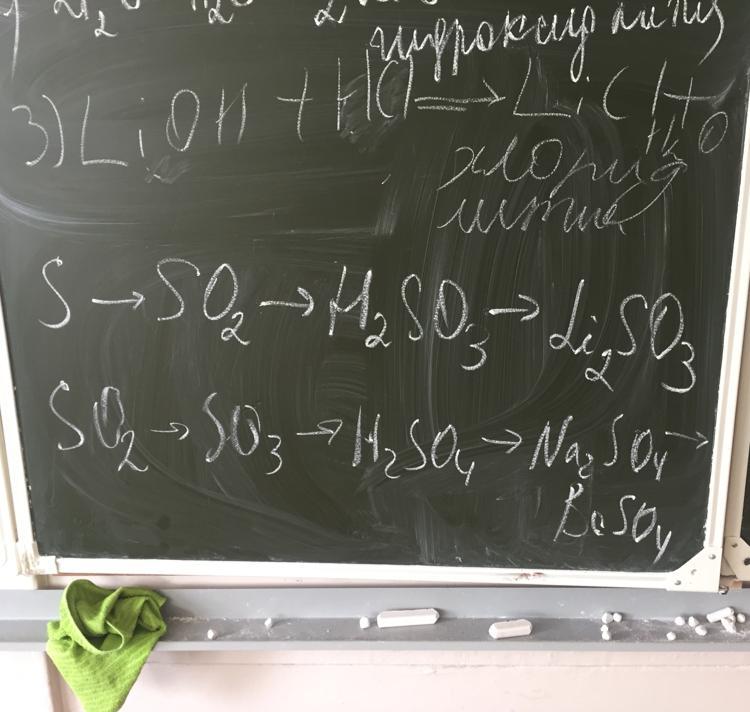 гидроксид лития
3) LiOH + HCl ⟹ LiCl + H₂O
хлорид
лития
S → SO₂ → H₂SO₃ → Li₂SO₃
SO₂ → SO₃ → H₂SO₄ → Na₂SO₄ →
BaSO₄